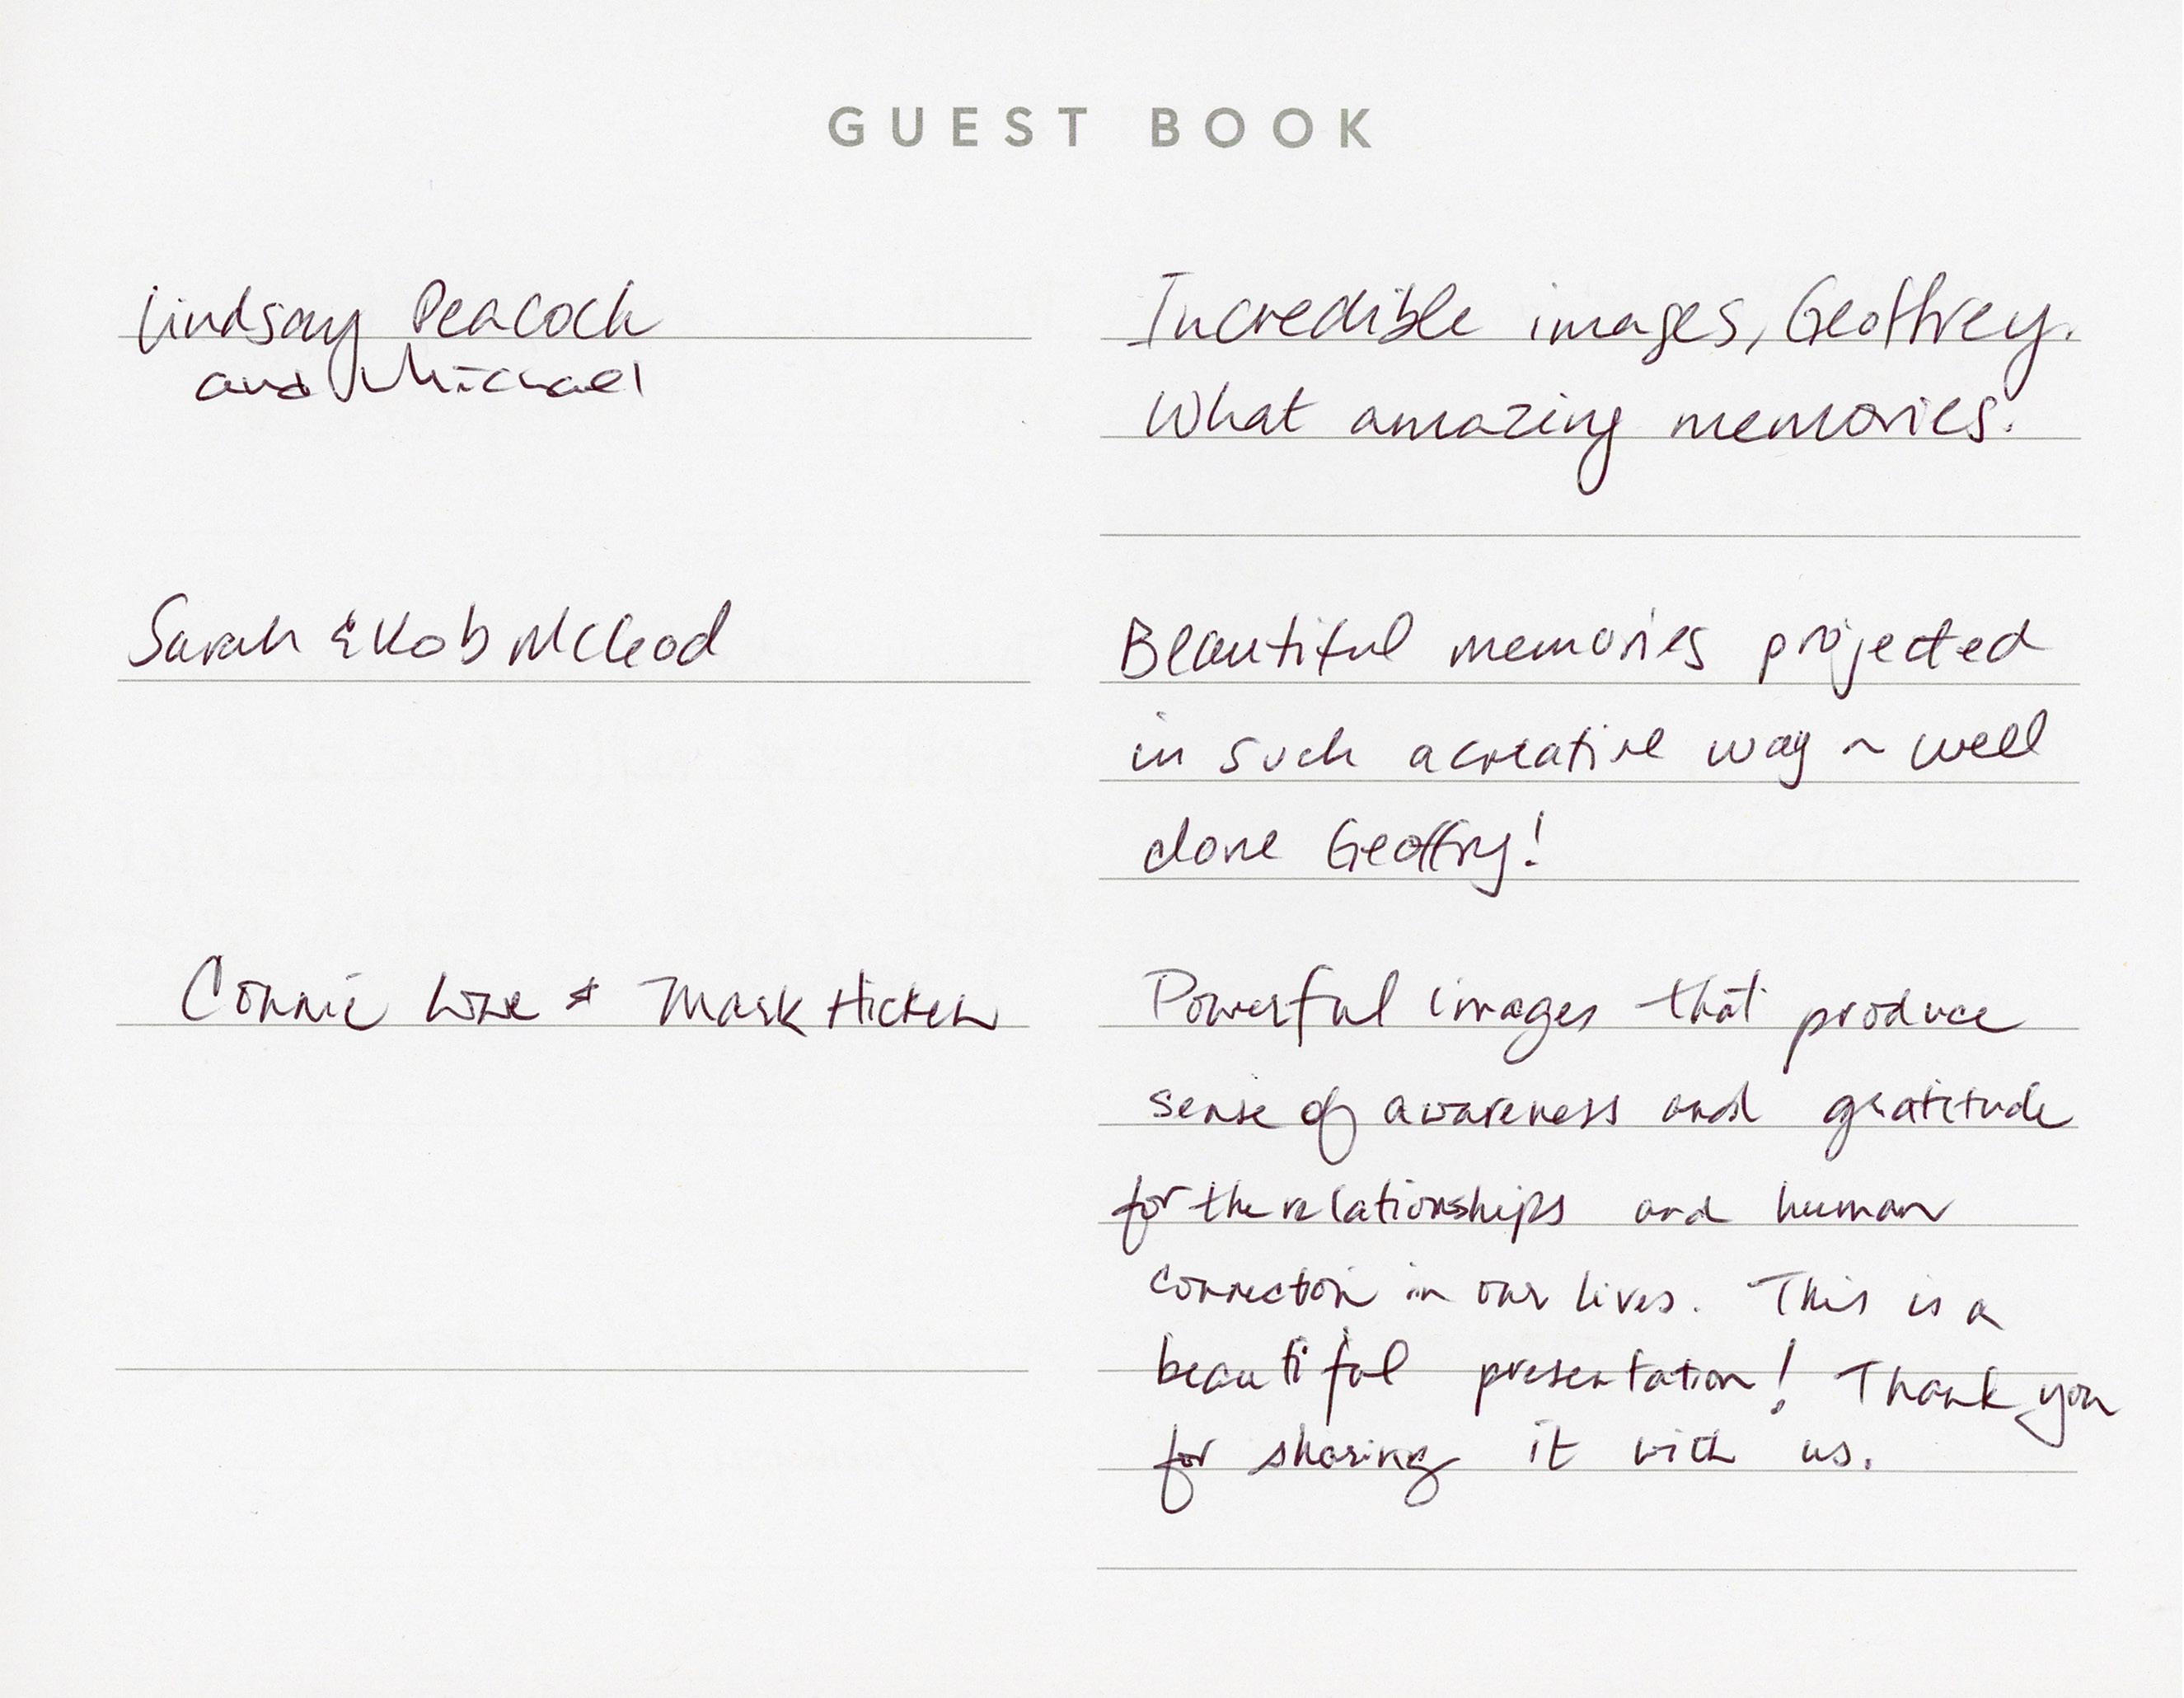 GUEST BOOK
Lindsay Peacock
and Michael
Incredible images, Geoffrey.
What amazing memories.
Sarah & Rob McLeod
Beautiful memories projected
in such a creative way ~ well
done Geoffry!
Connie Lowe & Mark Hicken
Powerful images that produce
sense of awareness and gratitude
for the relationships and human
connection in our lives. This is a
beautiful presentation! Thank you
for sharing it with us.